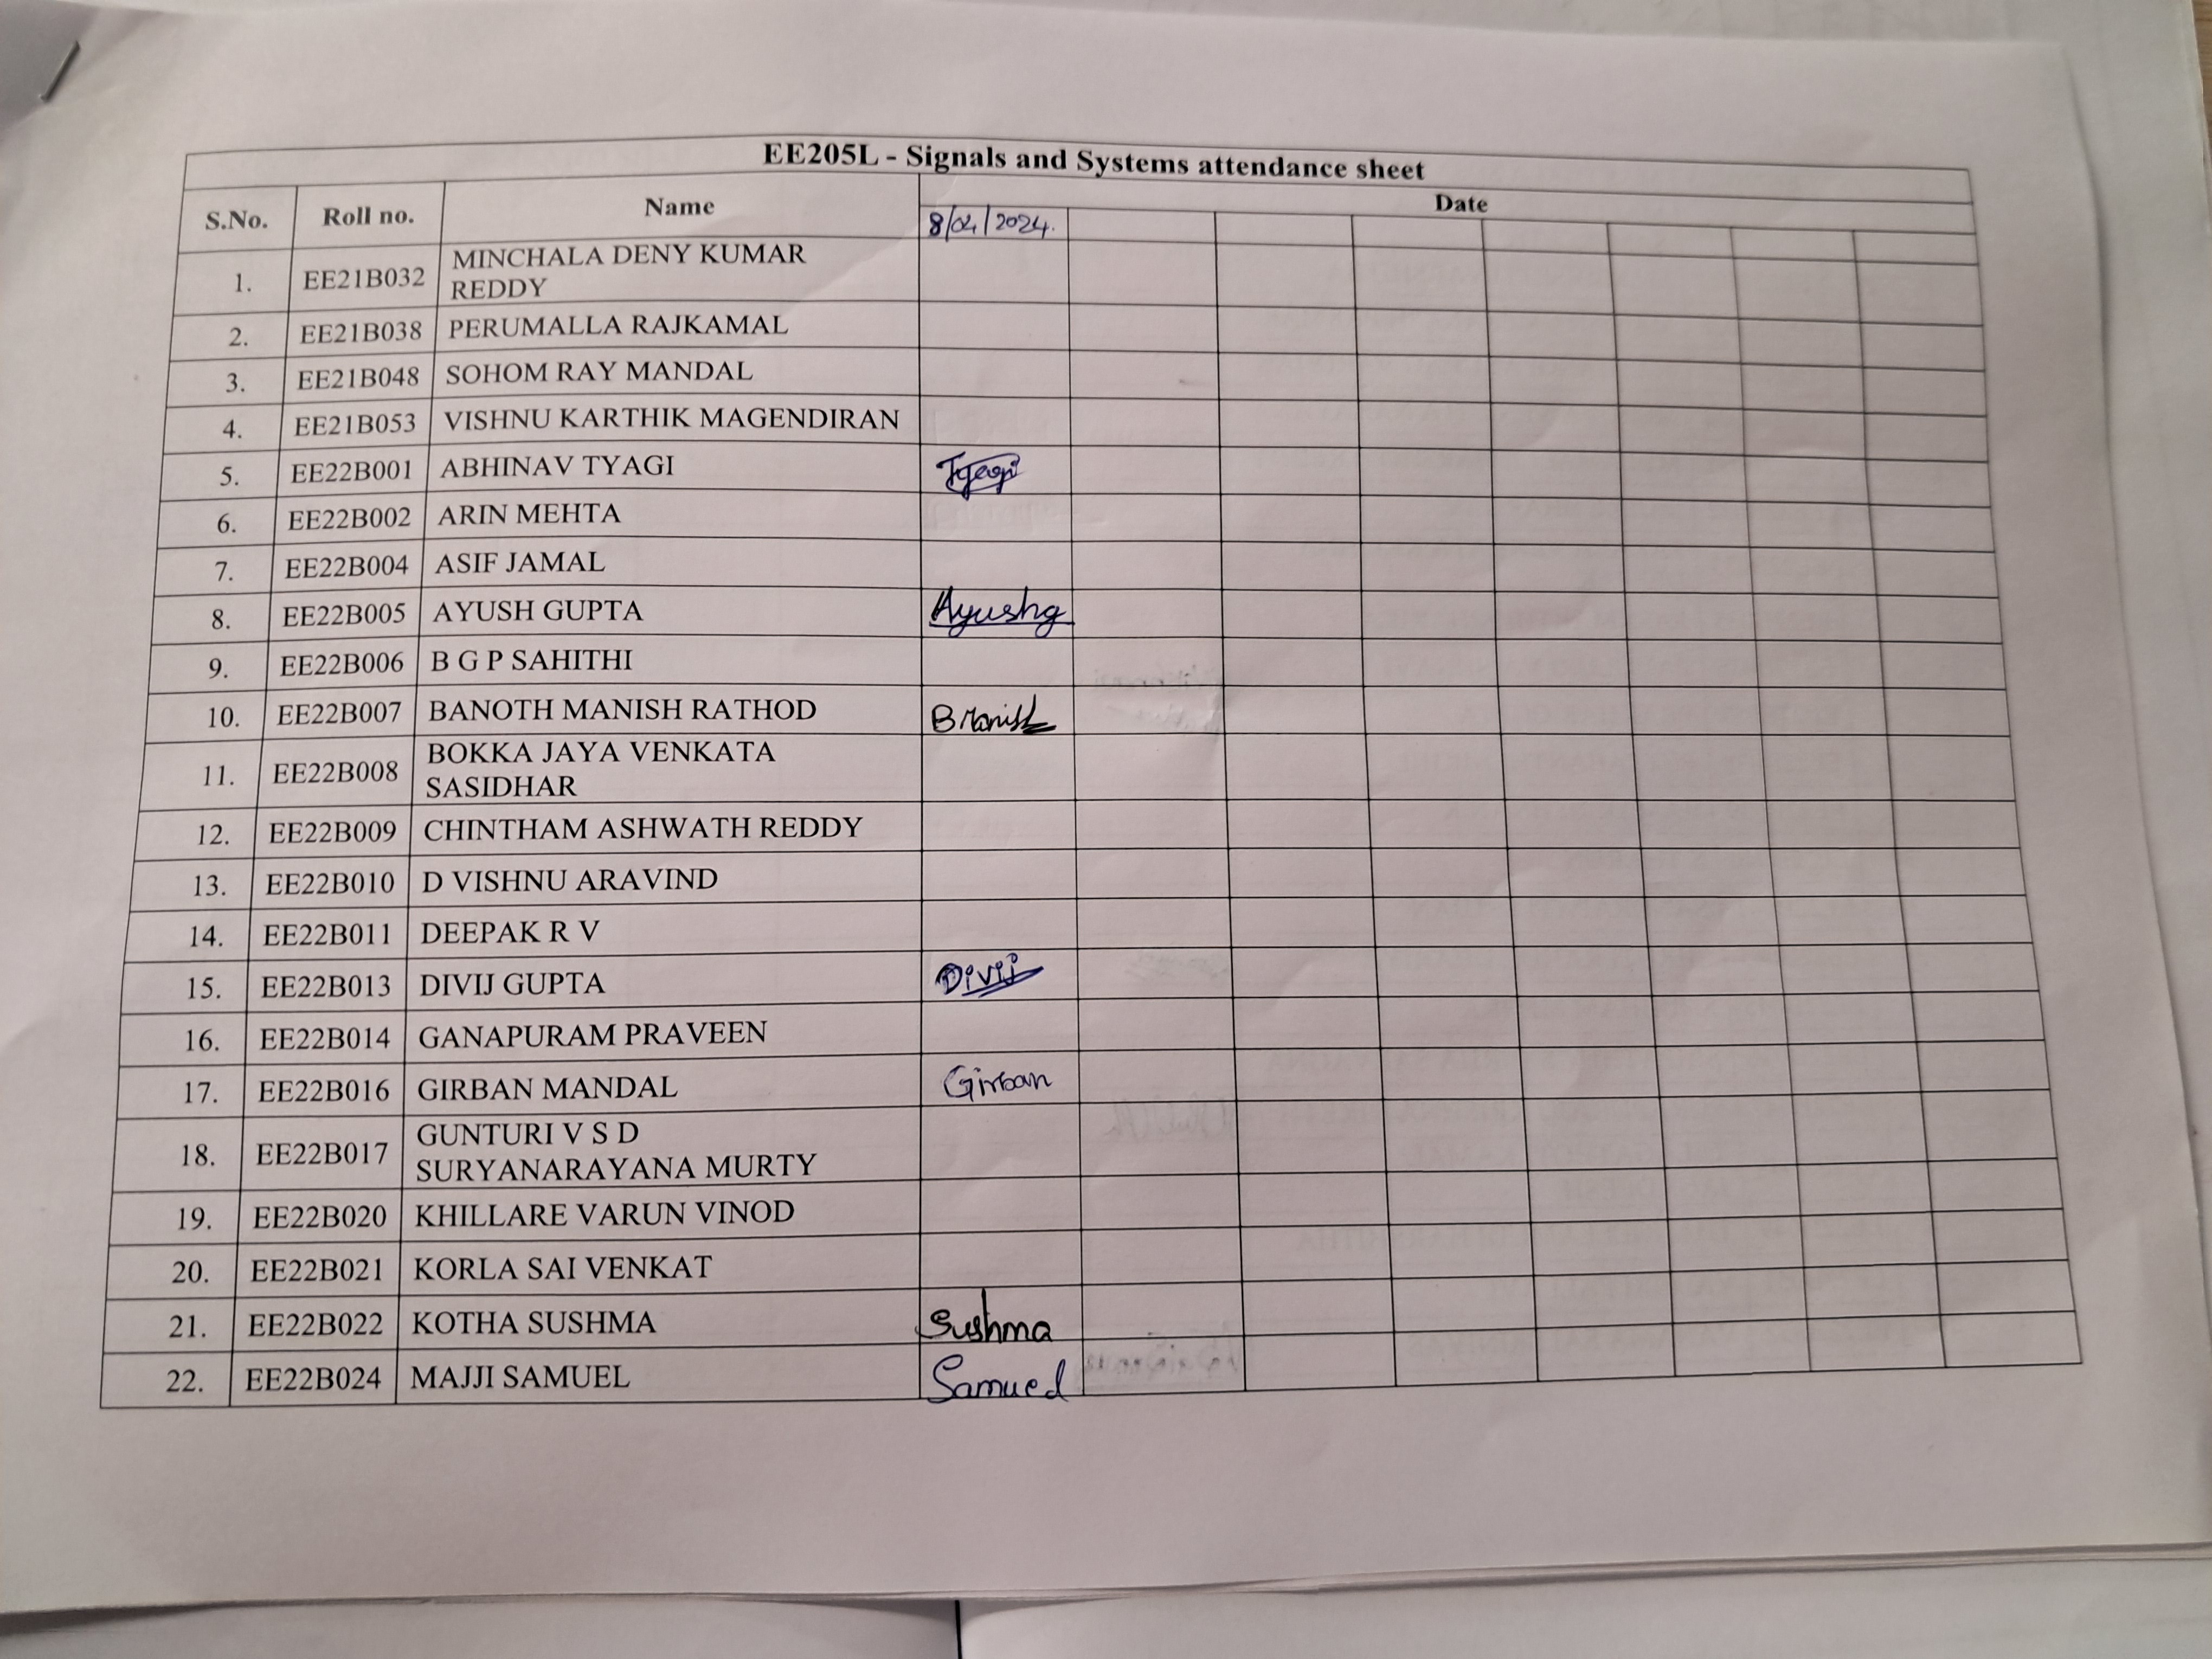 EE205L - Signals and Systems attendance sheet
S.No. Roll no. Name Date
8/01/2024.
1. EE21B032 MINCHALA DENY KUMAR
REDDY
2. EE21B038 PERUMALLA RAJKAMAL
3. EE21B048 SOHOM RAY MANDAL
4. EE21B053 VISHNU KARTHIK MAGENDIRAN
5. EE22B001 ABHINAV TYAGI Tyagi
6. EE22B002 ARIN MEHTA
7. EE22B004 ASIF JAMAL
8. EE22B005 AYUSH GUPTA Ayushg
9. EE22B006 B G P SAHITHI
10. EE22B007 BANOTH MANISH RATHOD B Manish
11. EE22B008 BOKKA JAYA VENKATA
SASIDHAR
12. EE22B009 CHINTHAM ASHWATH REDDY
13. EE22B010 D VISHNU ARAVIND
14. EE22B011 DEEPAK R V
15. EE22B013 DIVIJ GUPTA Divij
16. EE22B014 GANAPURAM PRAVEEN
17. EE22B016 GIRBAN MANDAL Girban
18. EE22B017 GUNTURI V S D
SURYANARAYANA MURTY
19. EE22B020 KHILLARE VARUN VINOD
20. EE22B021 KORLA SAI VENKAT
21. EE22B022 KOTHA SUSHMA Sushma
22. EE22B024 MAJJI SAMUEL Samuel